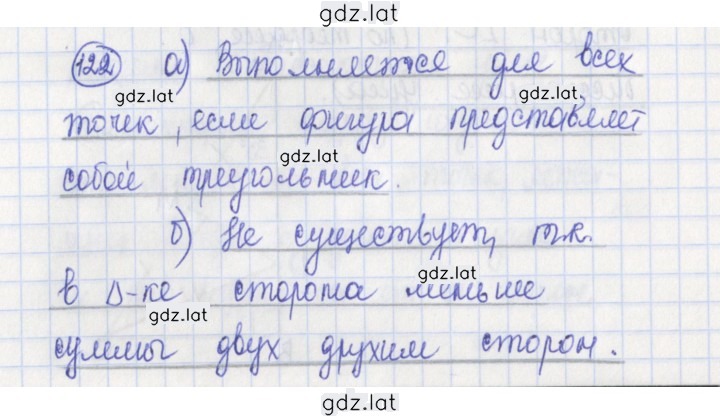 gdz.lat
122 а) Выполняется для всех
gdz.lat
gdz.lat
точек, если фигура представляет
gdz.lat
собой треугольник.
б) Не существует, т.к.
gdz.lat
в Δ-ке сторона меньше
gdz.lat
суммы двух других сторон.
gdz.lat